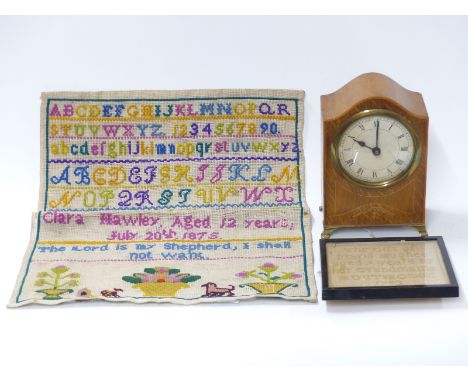 ABCDEFGHIJKLMNOPQR
STUVWXYZ. 1234567890.
abcdefghijklmnopqrstuvwxyz
ABCDEFGHIJKLM
NOPQRSTUVWX
Clara Hawley, Aged 12 years,
July 20th 1875.
The Lord is my Shepherd, I shall
not want.